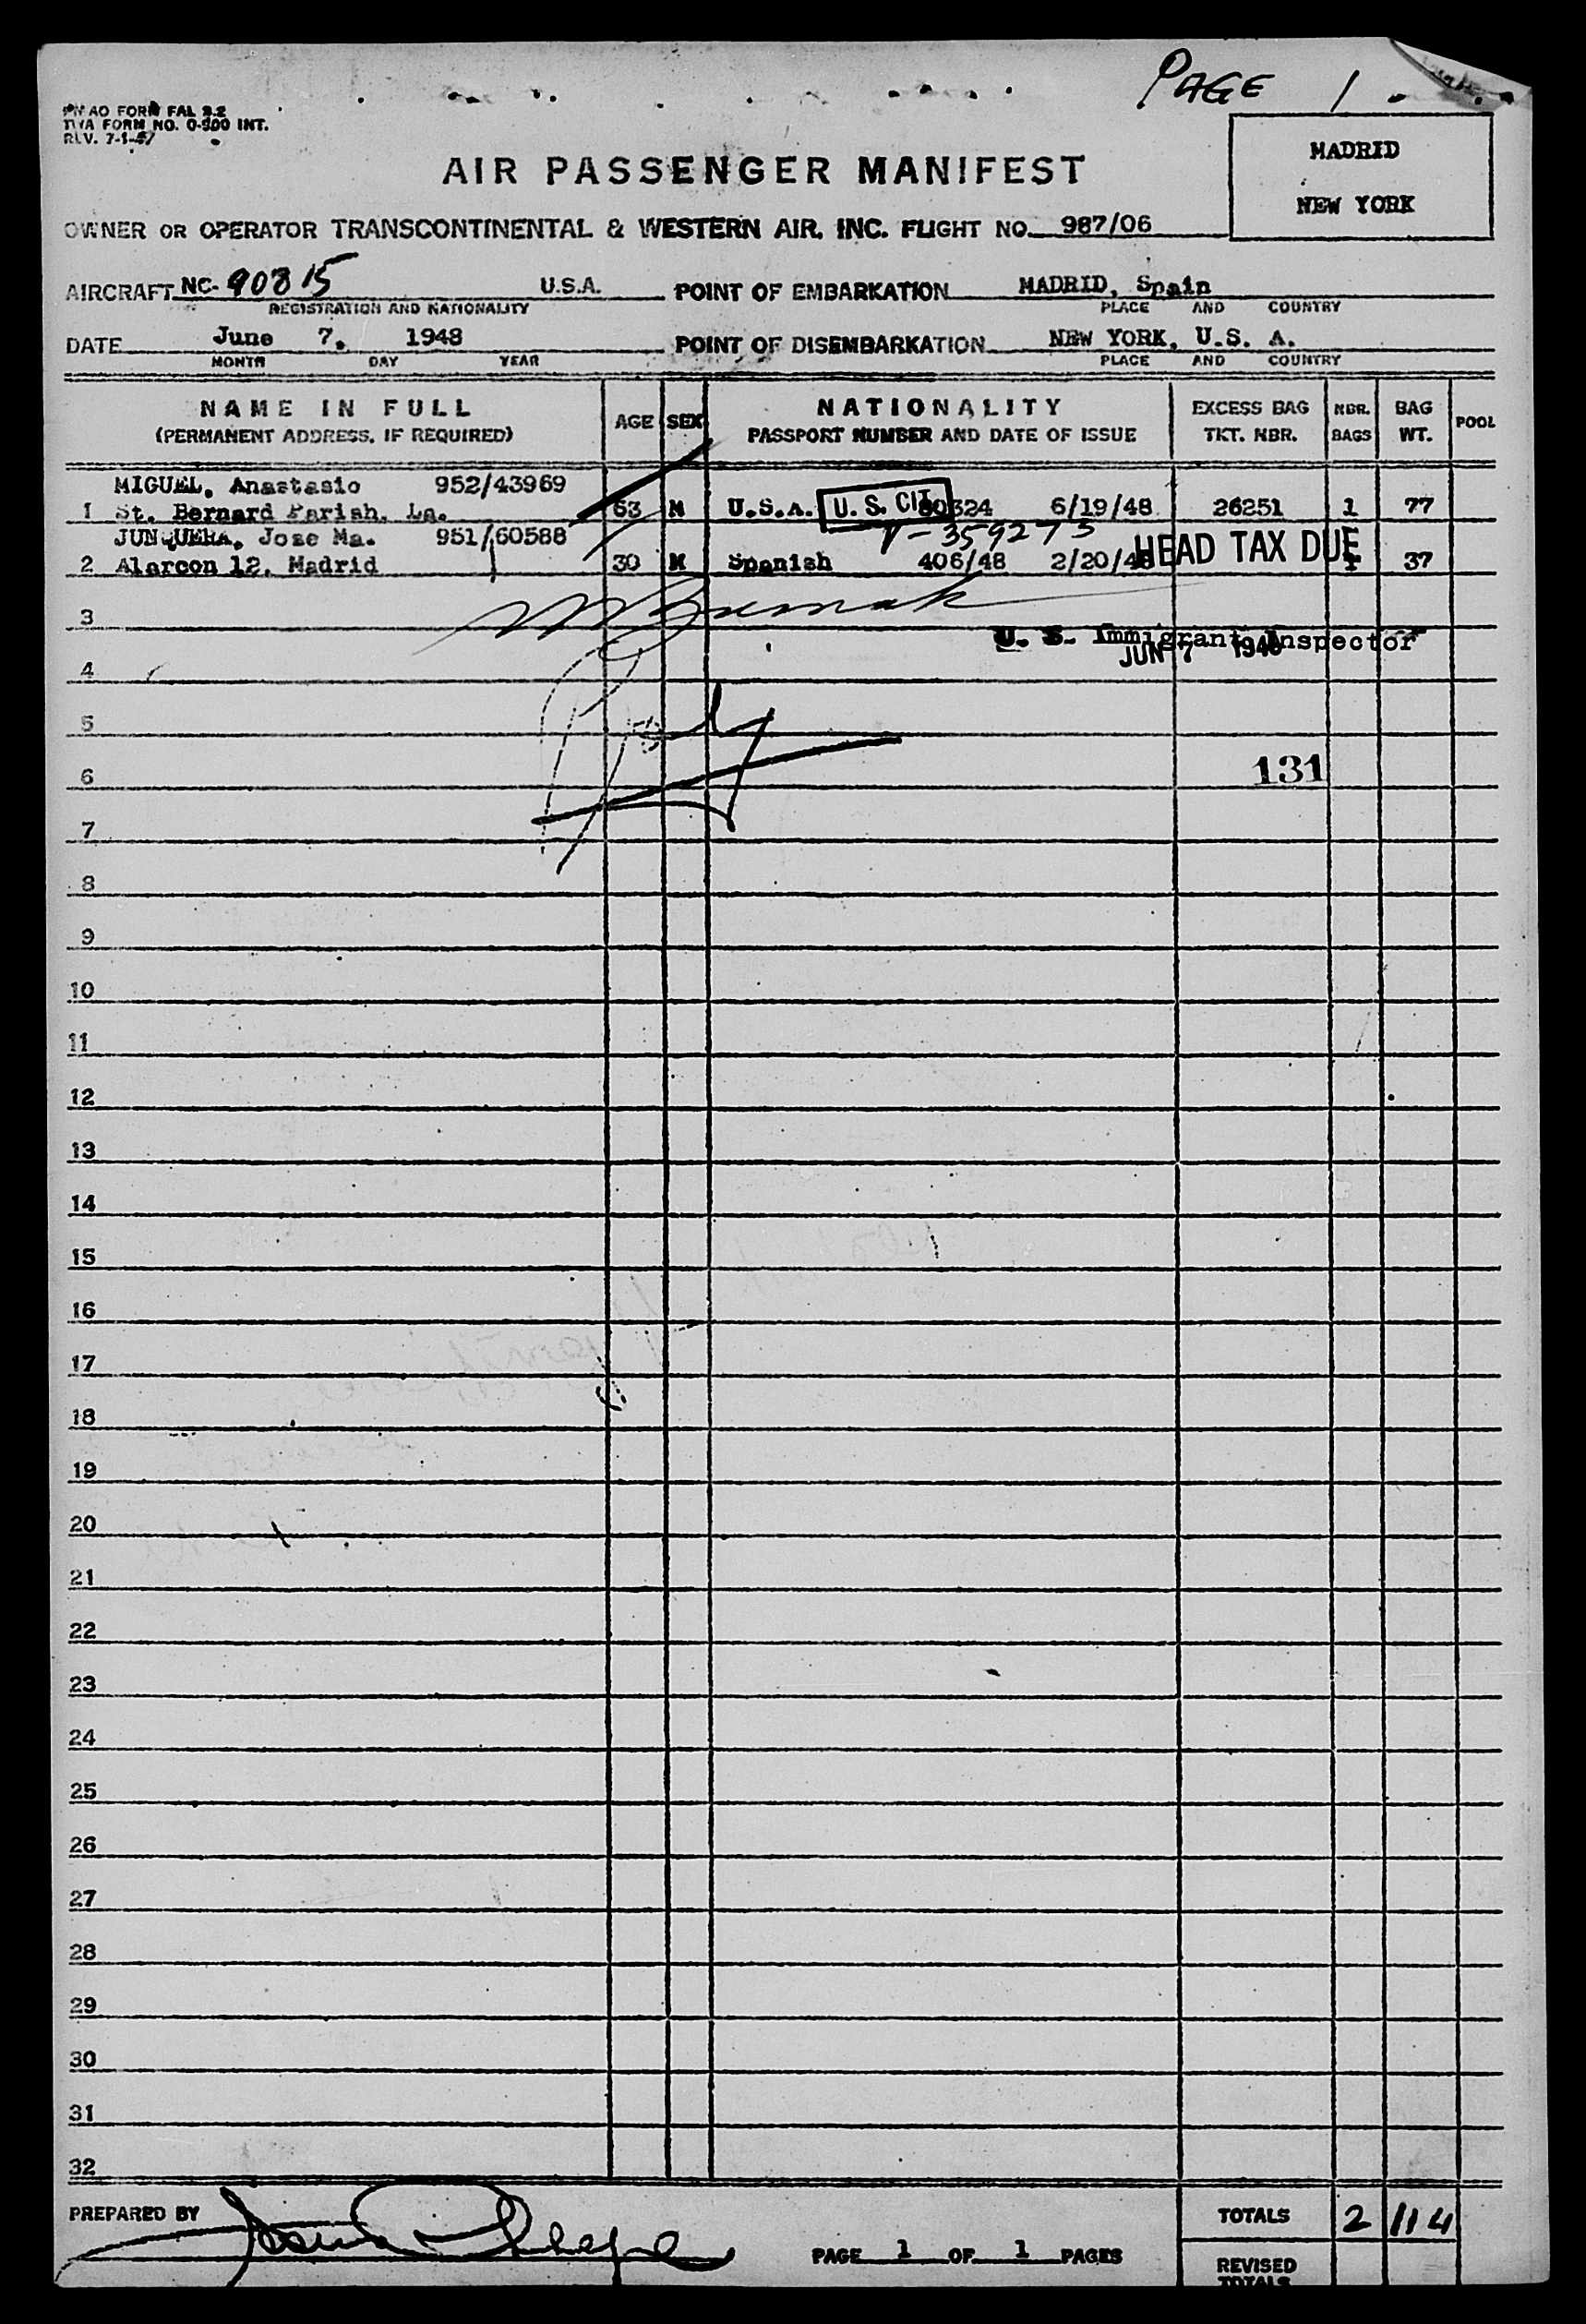 PAGE 1
PICAO FORM FAL 3.2
TWA FORM NO. 0-900 INT.
REV. 7-1-47
MADRID
NEW YORK
AIR PASSENGER MANIFEST
OWNER OR OPERATOR TRANSCONTINENTAL & WESTERN AIR, INC. FLIGHT NO. 987/06
AIRCRAFT NC-90815 U.S.A. POINT OF EMBARKATION MADRID, Spain
REGISTRATION AND NATIONALITY PLACE AND COUNTRY
DATE June 7. 1948 POINT OF DISEMBARKATION NEW YORK, U.S. A.
MONTH DAY YEAR PLACE AND COUNTRY
NAME IN FULL (PERMANENT ADDRESS, IF REQUIRED) AGE SEX NATIONALITY PASSPORT NUMBER AND DATE OF ISSUE EXCESS BAG TKT. NBR. NBR. BAGS BAG WT. POOL
MIGUEL, Anastasio 952/43969
1 St. Bernard Parish, La. 53 M U.S.A. U.S. CIT. 80324 6/19/48 26251 1 77
JUNQUERA, Jose Ma. 951/60588 V-359273
2 Alarcon 12. Madrid 30 M Spanish 406/48 2/20/48 HEAD TAX DUE 1 37
3
U. S. Immigrant Inspector
JUN 7 1948
4
5
6 131
7
8
9
10
11
12
13
14
15
16
17
18
19
20
21
22
23
24
25
26
27
28
29
30
31
32
PREPARED BY TOTALS 2 114
PAGE 1 OF 1 PAGES
REVISED
TOTALS